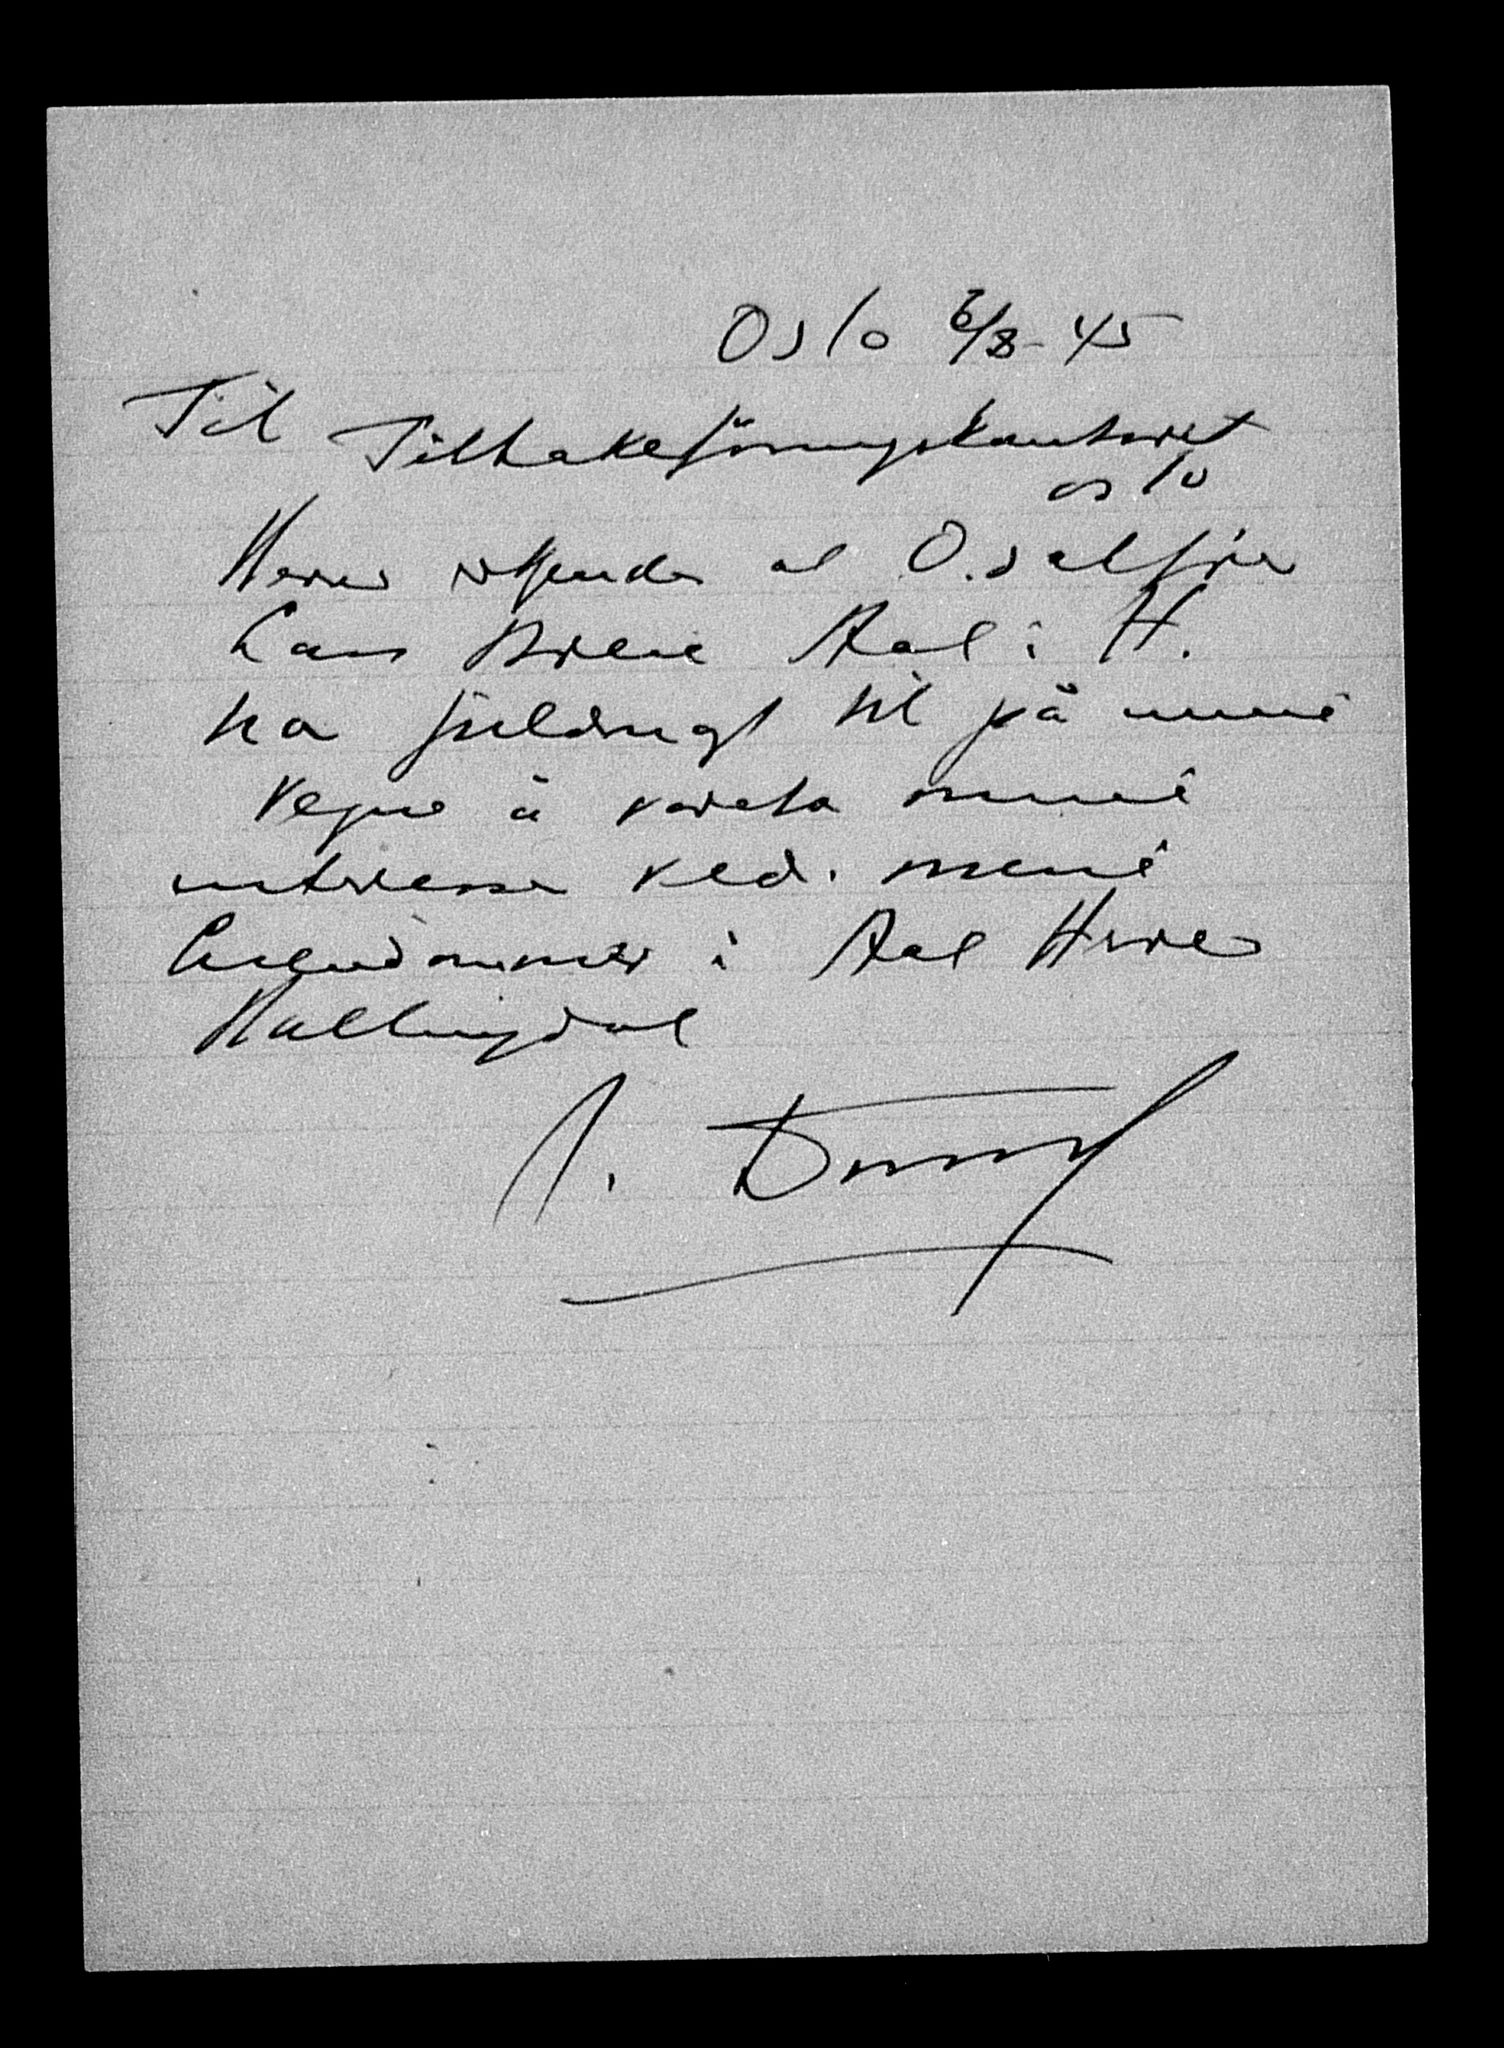 Oslo 6/8-45
Til Tilbakeføringskontoret
Oslo
Herved at O.r.sakfører
Lars Aal i H.
har fuldmagt til på mine
vegne å vareta mine
interesser ved. mine
Eiendommer i Aal Herred
Hallingdal